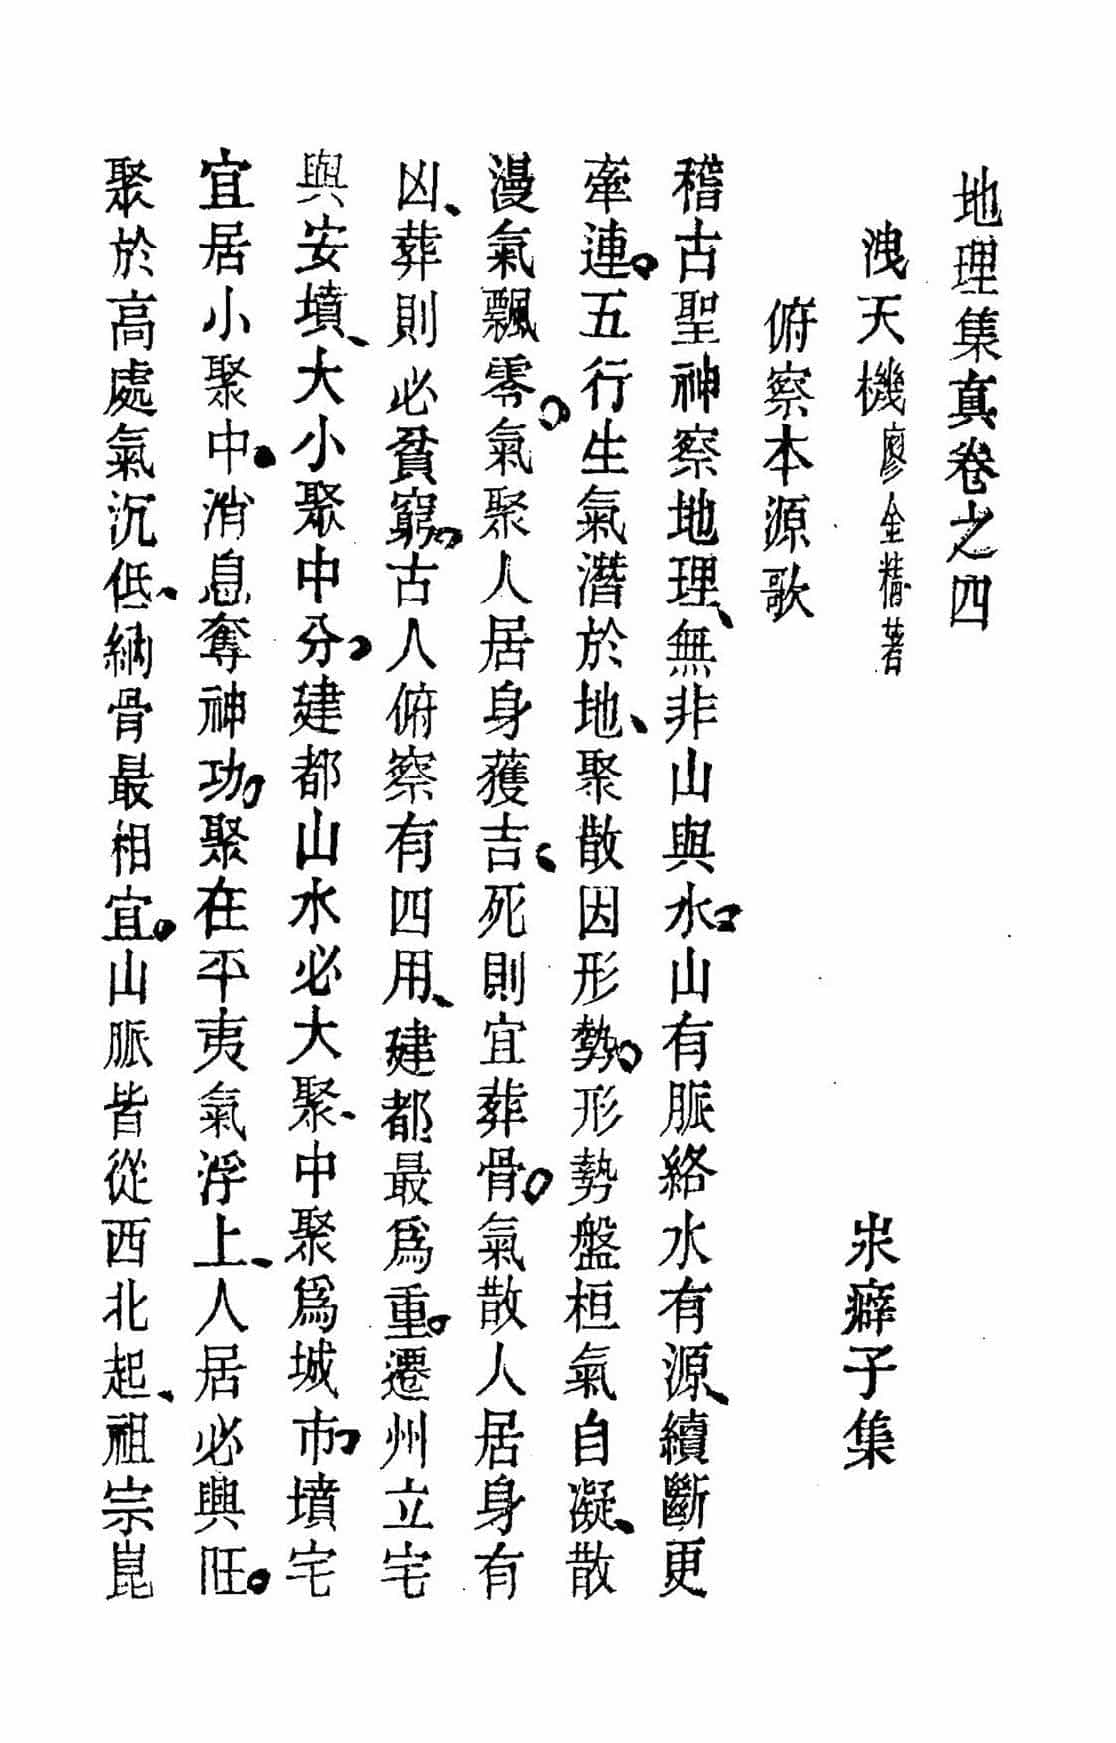 地理集真卷之四
洩天機廖金精著 癖子集
俯察本源歌
稽古聖神察地理、無非山與水。山有脈絡水有源、續斷更
牽連。五行生氣潛於地、聚散因形勢。形勢盤桓氣自凝、散
漫氣飄零。氣聚人居身獲吉、死則宜葬骨。氣散人居身有
凶、葬則必貧窮。古人俯察有四用、建都最爲重。遷州立宅
與安墳、大小聚中分。建都山水必大聚、中聚爲城市。墳宅
宜居小聚中。消息奪神功。聚在平夷氣浮上、人居必興旺。
聚於高處氣沉低、納骨最相宜。山脈皆從西北起、祖宗崑